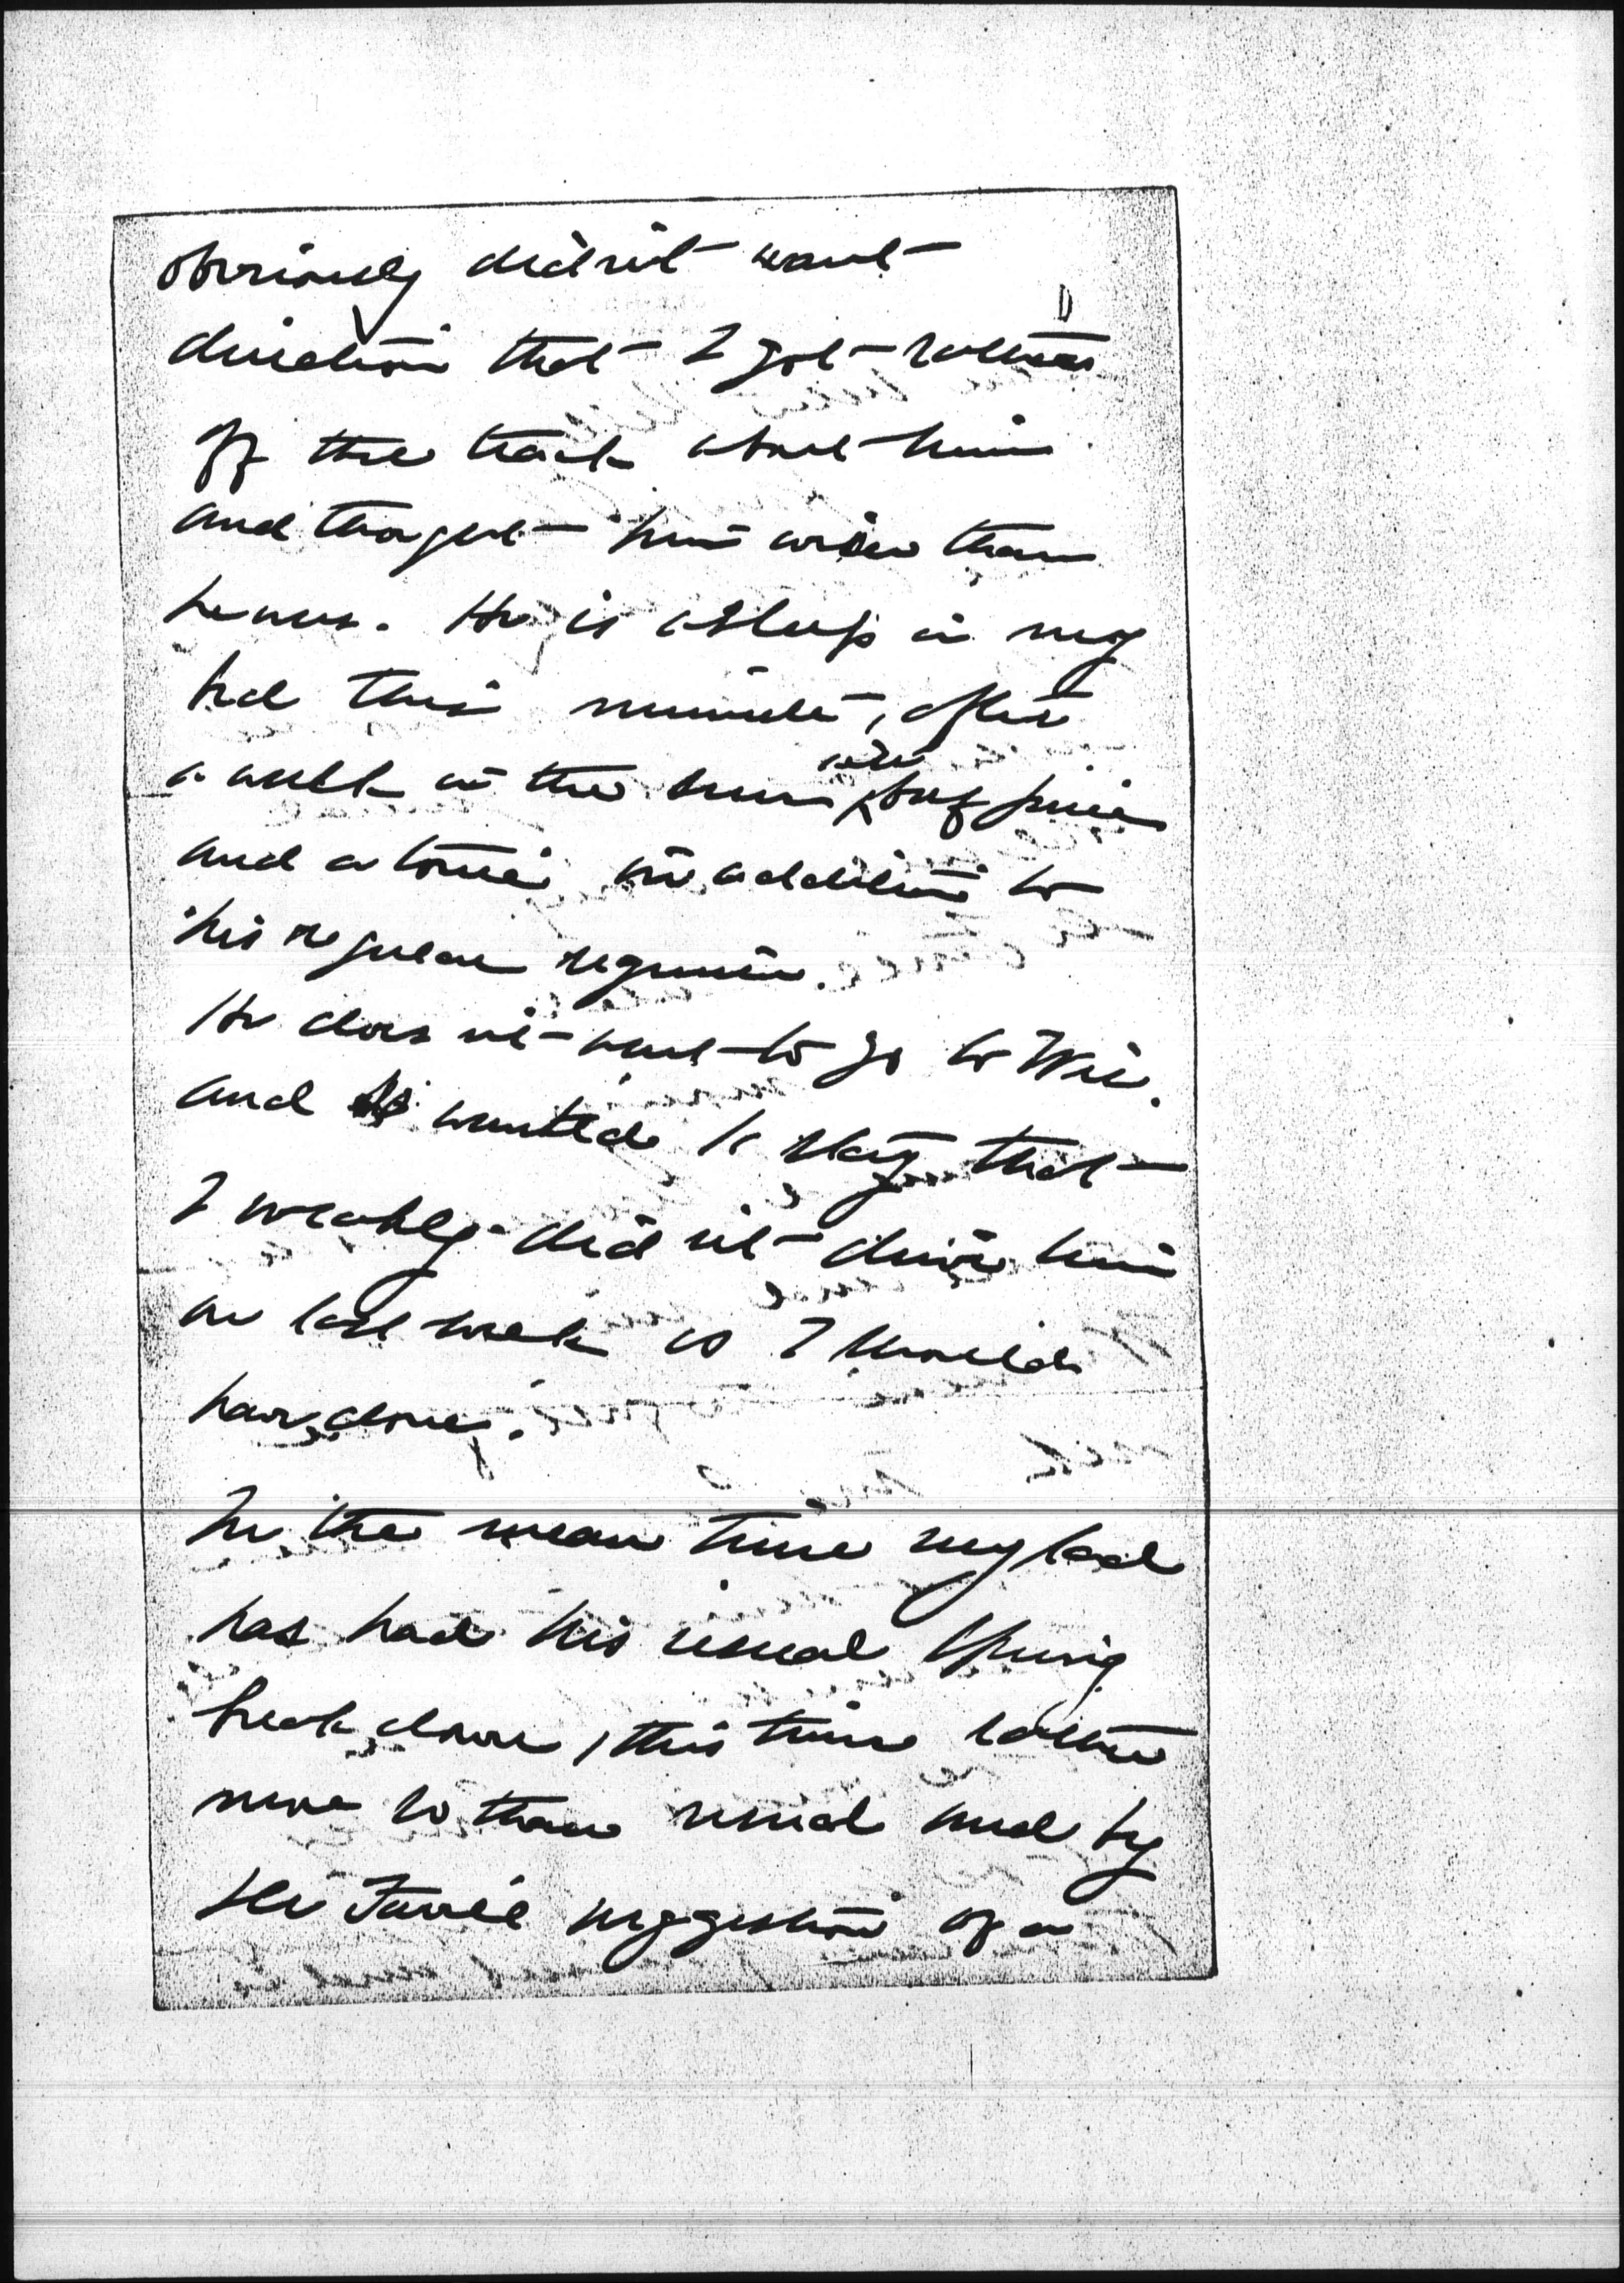 obviously didn't want
direction that I got rather
off the track about him
and thought him wiser than
he was. He is asleep in my
bed this minute, after
a week in the house, with beef juice
and a tonic in addition to
his regular regimen.
He does not want to go to Wis.
and wanted to stay that
I weakly did not drive him
on last week as I should
have done.
In the mean time my lad
has had his usual Spring
break down, this time rather
more so than usual and by
suggestion of a